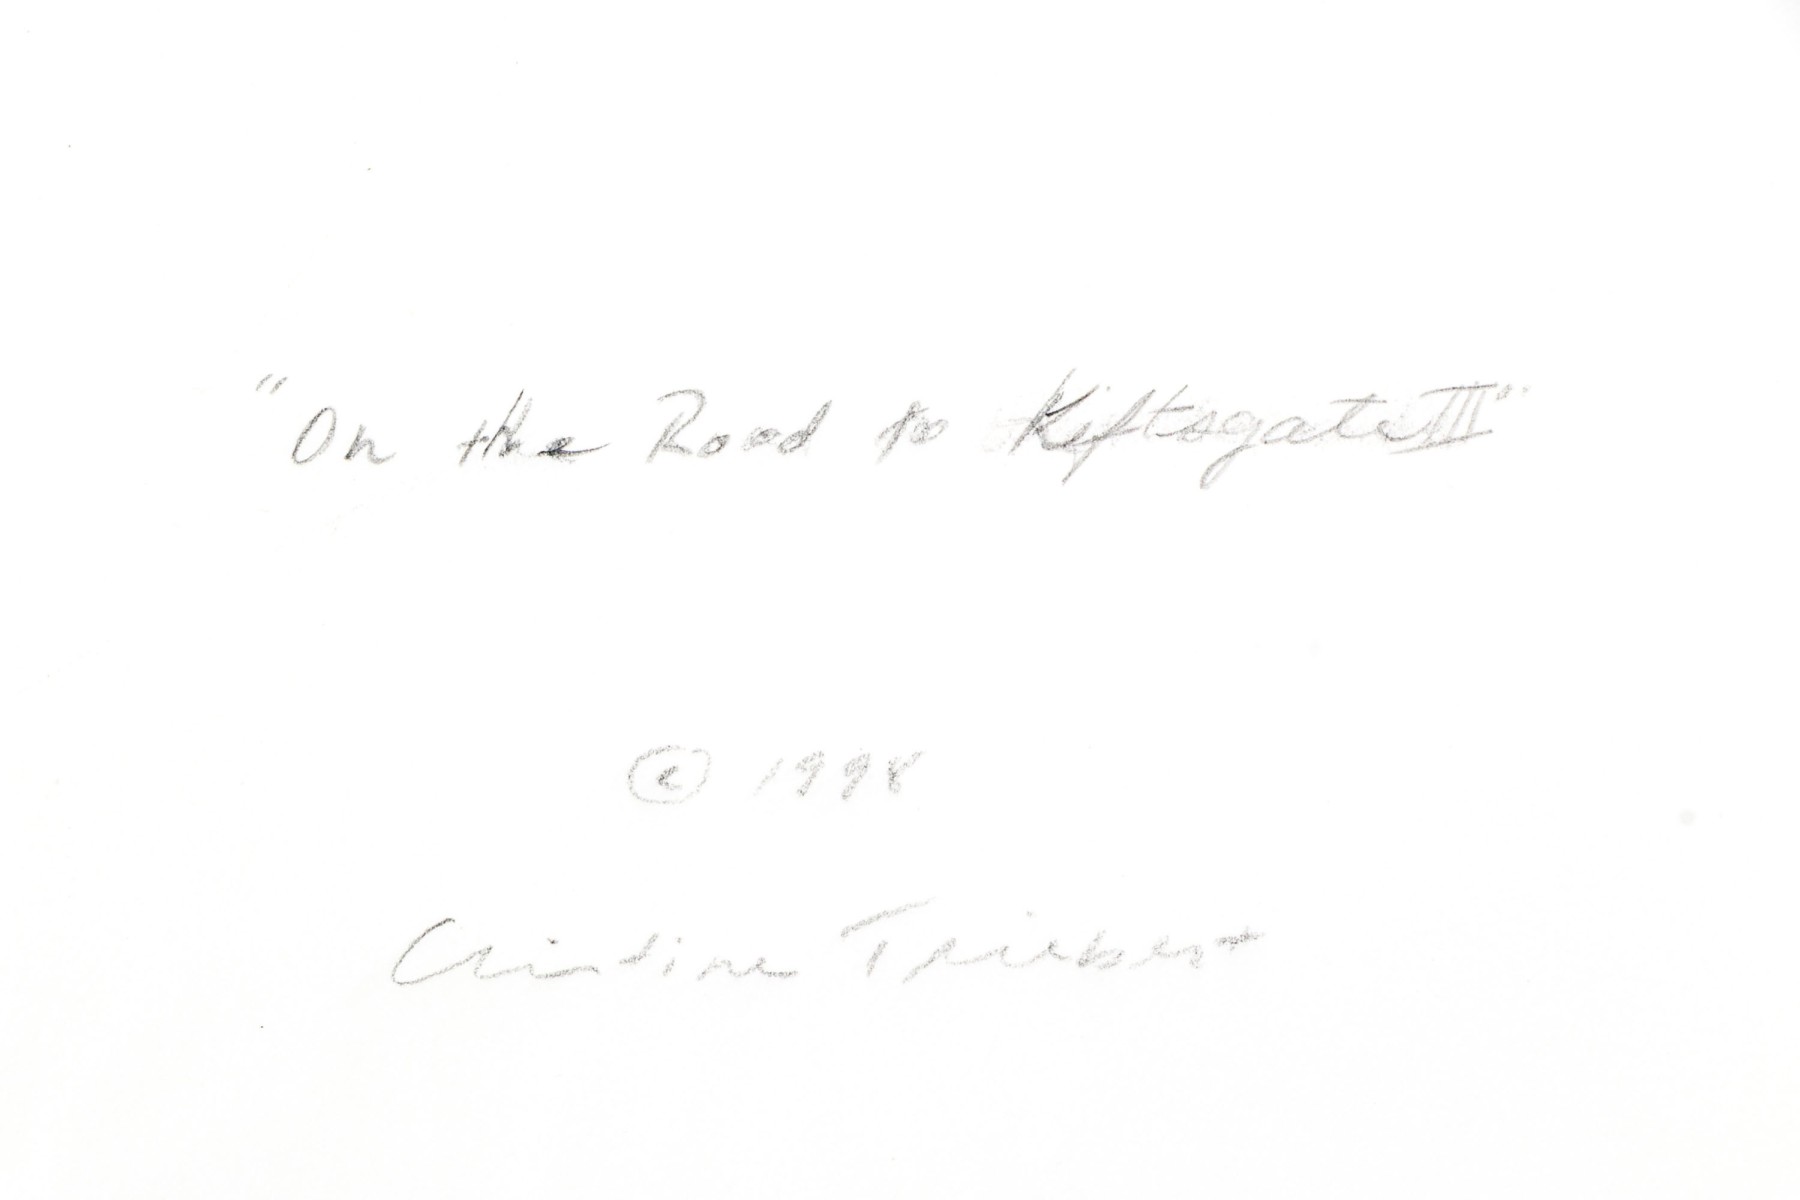 "On the Road to Kiftsgate III"
© 1998
Christine Triebert